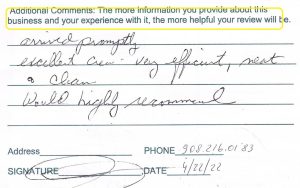 Additional Comments: The more information you provide about this
business and your experience with it, the more helpful your review will be.
arrived promptly
excellent crew - very efficient, neat
& clean
Would highly recommend
Address PHONE 908.216.0183
SIGNATURE DATE 4/22/22